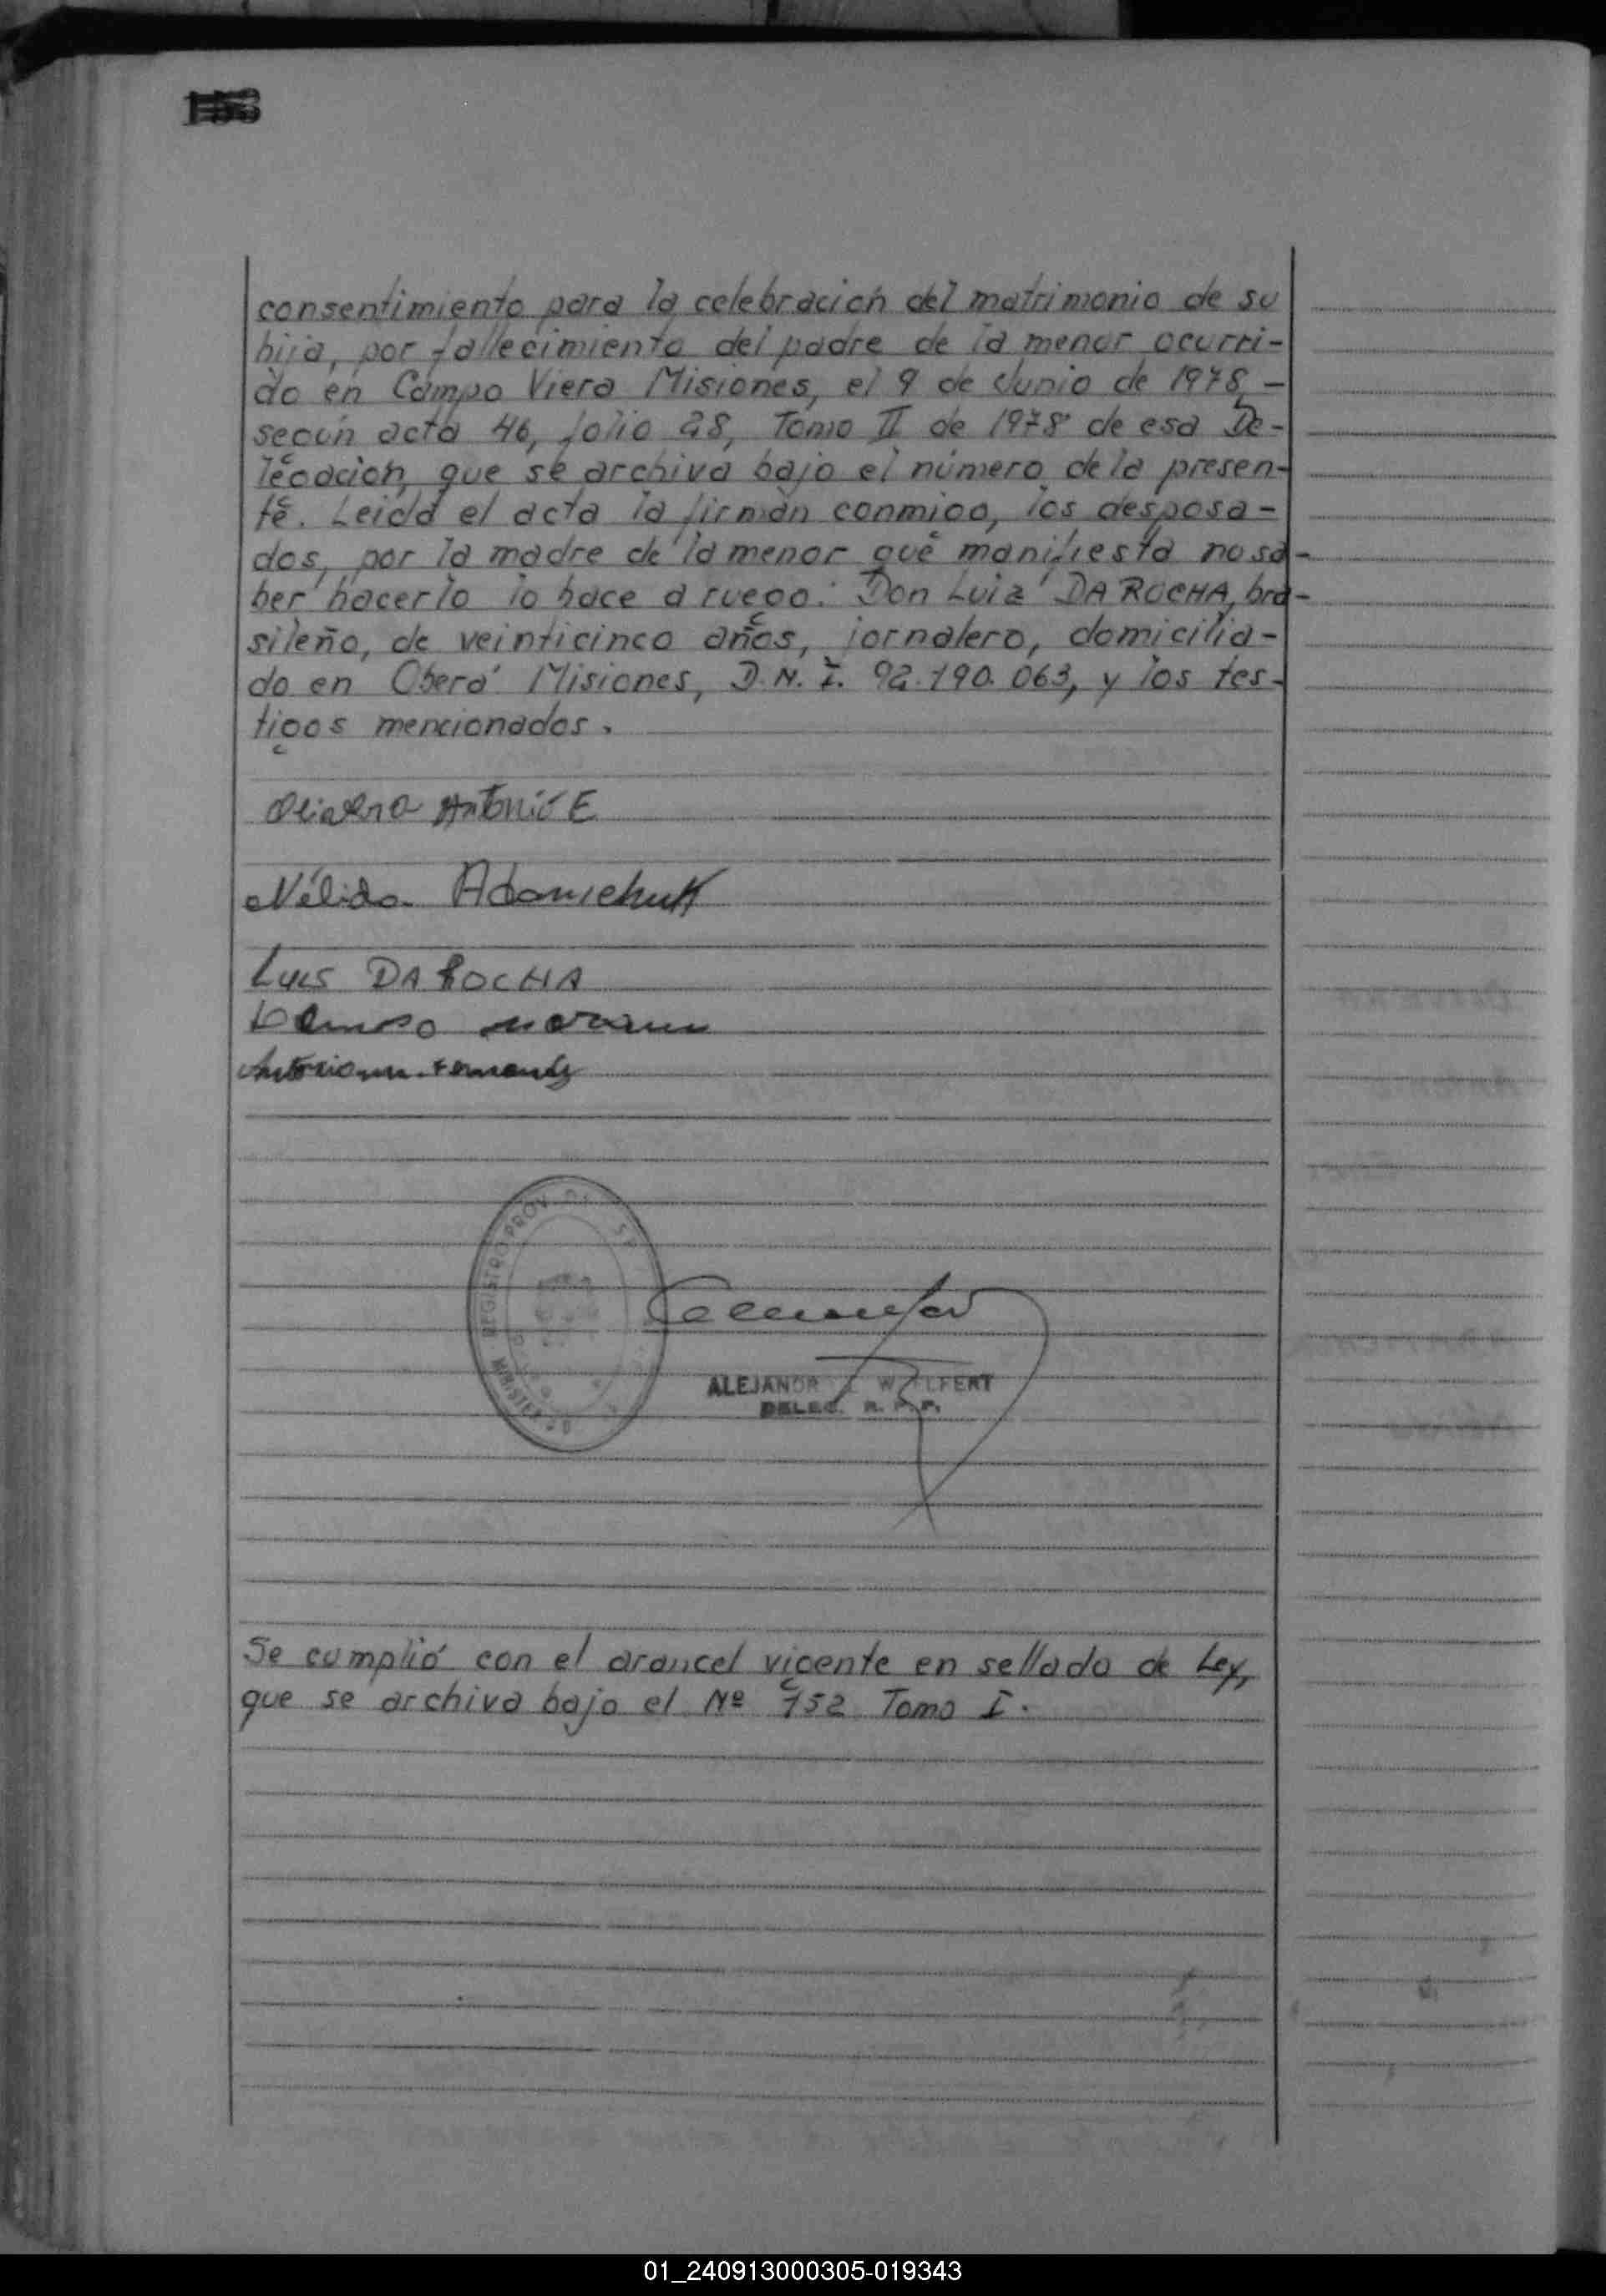 consentimiento para la celebración del matrimonio de su
hija, por fallecimiento del padre de la menor ocurri-
do en Campo Viera Misiones, el 9 de Junio de 1978, -
según acta 46, folio 28, Tomo II de 1978 de esa De-
legación, que se archiva bajo el número de la presen-
te. Leida el acta la firman conmigo, los desposa-
dos, por la madre de la menor que manifiesta no sa-
ber hacerlo lo hace a ruego: Don Luiz DA ROCHA, bra-
sileño, de veinticinco años, jornalero, domicilia-
do en Oberá Misiones, D.N.I. 92.190.063, y los tes-
tigos mencionados.
Antonio E
Nélida Adamchuk
Luis DA ROCHA
REGISTRO PROV. DE
MINISTER
ALEJANDR
DELEG. R. P. P.
Se cumplió con el arancel vigente en sellado de Ley,
que se archiva bajo el Nº 152 Tomo I.
01_240913000305-019343